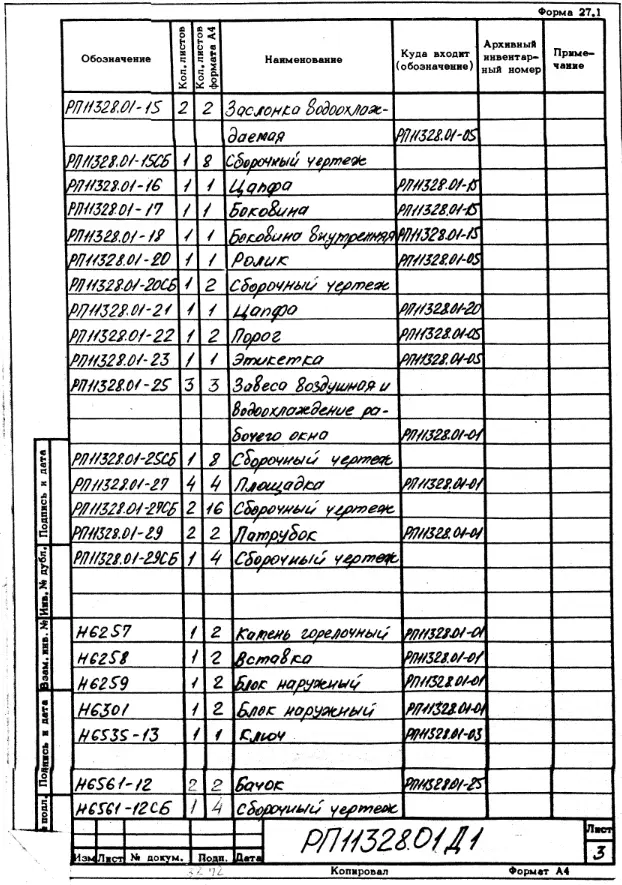 Форма 27.1
Обозначение Кол. листов Кол. листов формата А4 Наименование Куда входит (обозначение) Архивный инвентарный номер Примечание
РП11328.01-15 2 2 Заслонка водоохлаж-
даемая РП11328.01-05
РП11328.01-15СБ 1 8 Сборочный чертеж
РП11328.01-16 1 1 Цапфа РП11328.01-15
РП11328.01-17 1 1 Боковина РП11328.01-15
РП11328.01-18 1 1 Боковина внутренняя РП11328.01-15
РП11328.01-20 1 1 Ролик РП11328.01-05
РП11328.01-20СБ 1 2 Сборочный чертеж
РП11328.01-21 1 1 Цапфа РП11328.01-20
РП11328.01-22 1 2 Порог РП11328.01-05
РП11328.01-23 1 1 Этикетка РП11328.01-05
РП11328.01-25 3 3 Завеса воздушная и
водоохлаждение ра-
бочего окна РП11328.01-01
РП11328.01-25СБ 1 8 Сборочный чертеж
РП11328.01-27 4 4 Площадка РП11328.01-01
РП11328.01-27СБ 2 16 Сборочный чертеж
РП11328.01-29 2 2 Патрубок РП11328.01-01
РП11328.01-29СБ 1 4 Сборочный чертеж
Н6257 1 2 Камень горелочный РП11328.01-01
Н6258 1 2 Вставка РП11328.01-01
Н6259 1 2 Блок наружный РП11328.01-01
Н6301 1 2 Блок наружный РП11328.01-01
Н6535-13 1 1 Ключ РП11328.01-03
Н6561-12 2 2 Бачок РП11328.01-25
Н6561-12СБ 1 4 Сборочный чертеж
Подпись и дата
Инв. № дубл.
Взам. инв. №
Подпись и дата
№ подл.
РП11328.01Д1
Лист
3
Изм Лист № докум. Подп. Дата
Копировал Формат А4